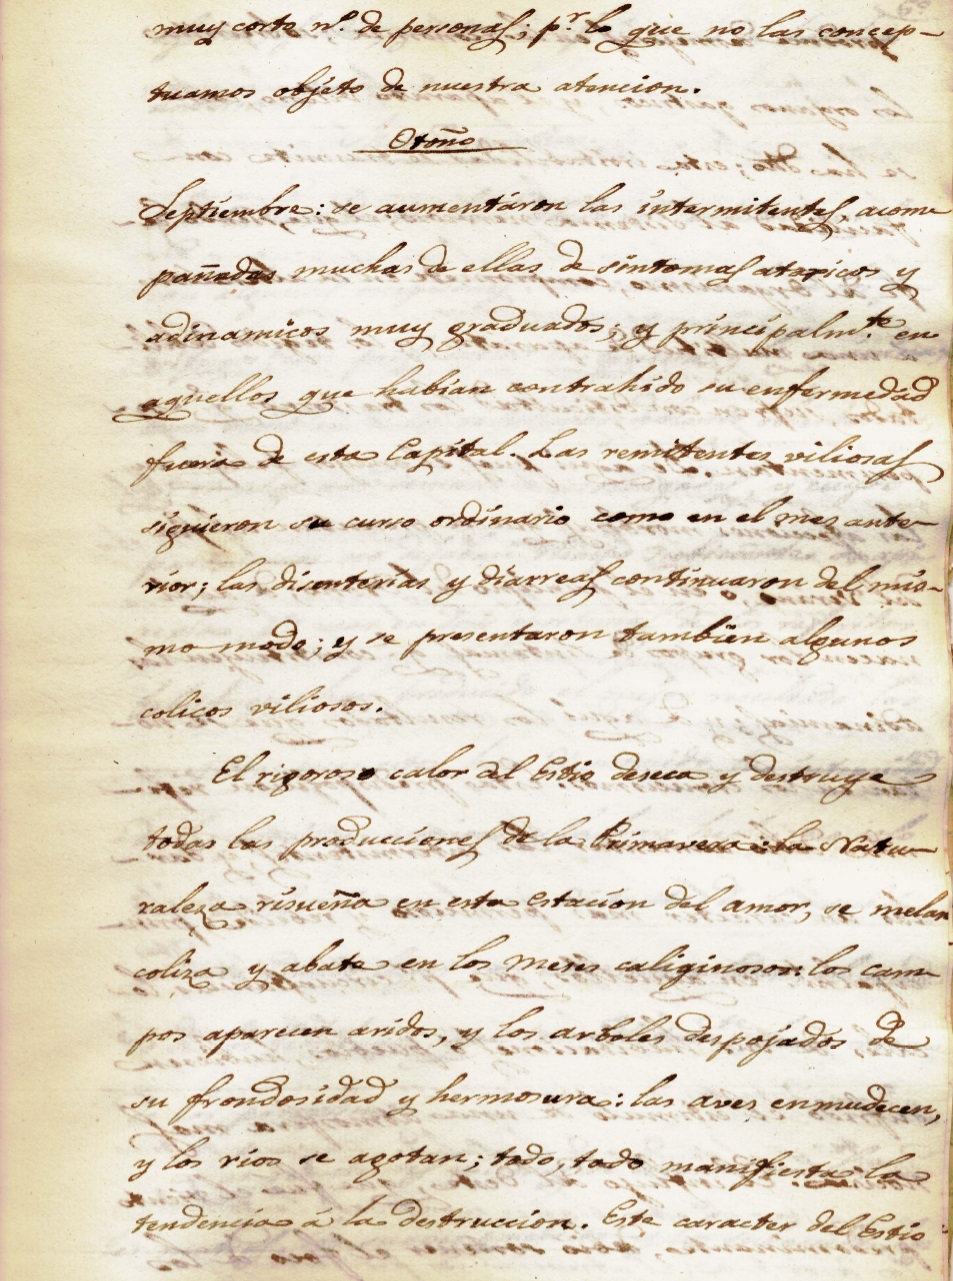 muy corto nº. de personas; pr. lo que no las concep-
tuamos objeto de nuestra atencion.
Otoño
Septiembre: se aumentáron las intermitentes, acom-
pañadas muchas de ellas de sintomas ataxicos y
adinamicos muy graduados; y principalmte. en
aquellos que habian contrahido su enfermedad
fuera de esta Capital. Las remitentes viliosas
siguieron su curso ordinario como en el mes ante-
rior; las disenterias y diarreas continuaron del mis-
mo modo; y se presentaron tambien algunos
colicos viliosos.
El rigoroso calor del Estio deseca y destruye
todas las producciones de la Primavera: la Natu-
raleza risueña en esta estacion del amor, se melan
coliza y abate en los meses caliginosos: los cam-
pos aparecen aridos, y los arboles despojados de
su frondosidad y hermosura: las aves enmudecen,
y los rios se agotan; todo, todo manifiesta la
tendencia á la destruccion. Este caracter del Estio